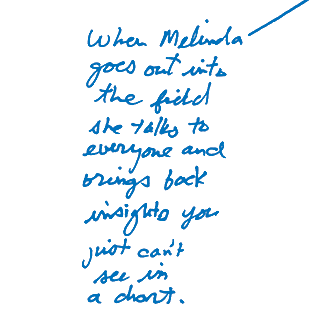 When Melinda
goes out into
the field
she talks to
everyone and
brings back
insights you
just can't
see in
a chart.